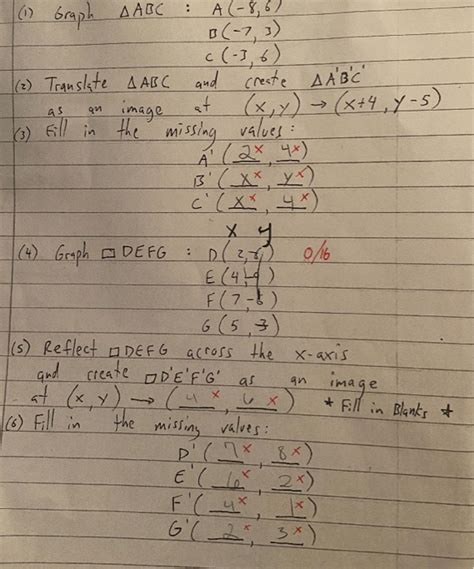 (1) Graph △ABC : A(-8,6)
B(-7, 3)
C(-3, 6)
(2) Translate △ABC and create △A'B'C'
as an image at (x,y) → (x+4, y-5)
(3) Fill in the missing values:
A' (2x, 4x)
B' (xx, yx)
C' (xx, 4x)
x y
(4) Graph □DEFG : D(2, ) 0/16
E(4, )
F(7, )
G(5, 3)
(5) Reflect □DEFG across the x-axis
and create □D'E'F'G' as an image
at (x,y) → (4x, 6x) * Fill in Blanks *
(6) Fill in the missing values:
D' (7x, 8x)
E' (6x, 2x)
F' (4x, 1x)
G' (2x, 3x)